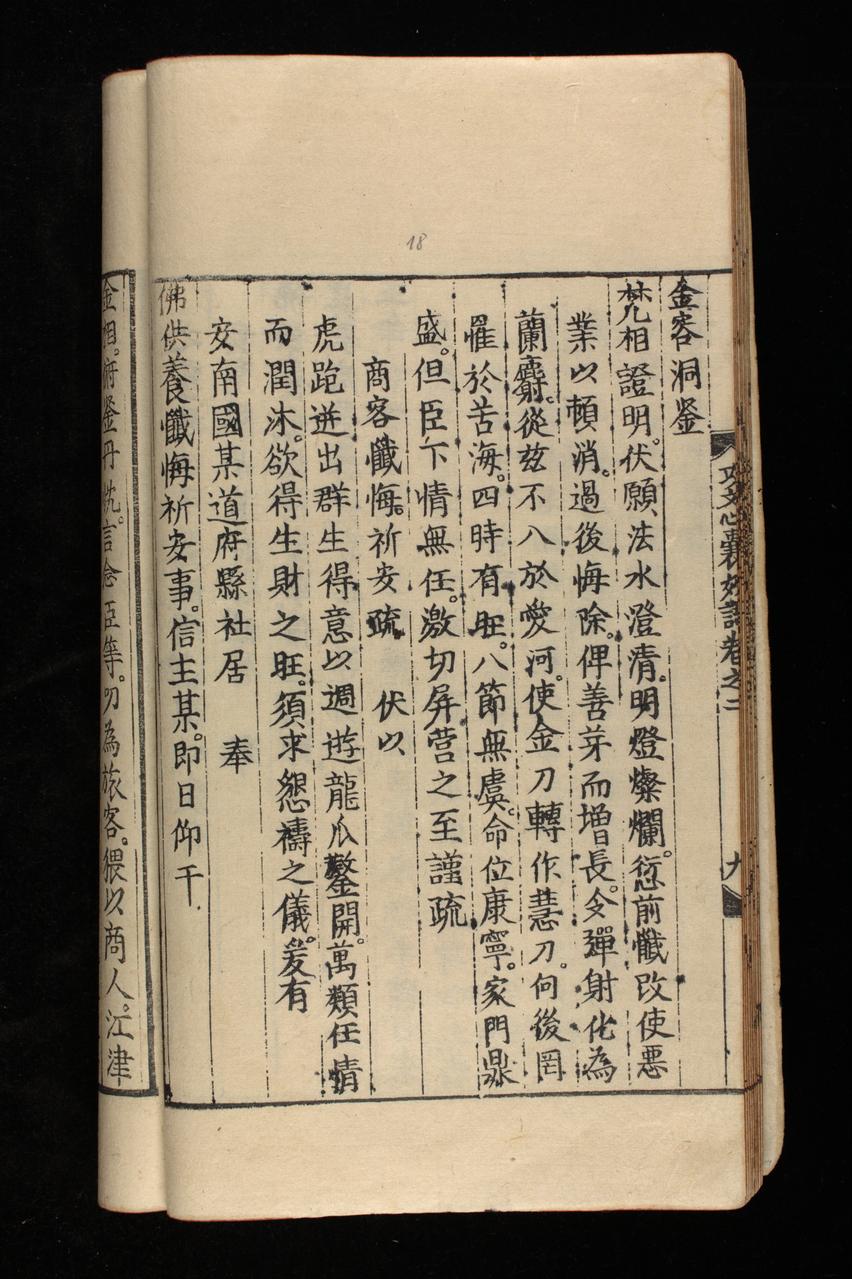 18
攻文心囊妙語卷之二
九
金容洞鉴
梵相證明。伏願法水澄清。明燈燦爛。愆前懺改使悪
業以頓消。過後悔除。俾善芽而增長。令彈射化為
蘭麝。從玆不入於愛河。使金刀轉作慧刀。何後罔
罹於苦海。四時有旺。八節無虞。命位康寧。家門鼎
盛。但臣下情無任。激切屏营之至謹疏
商客懺悔。祈安疏 伏以
虎跑迸出群生得意以週遊龍爪鑿開。萬類任情
而潤沐。欲得生財之旺。須求懇禱之儀。爰有
安南國某道府縣社居 奉
佛供養懺悔祈安事。信主某。即日仰干
金相。俯鉴丹忱。言念臣等。叨為旅客。猥以商人。江津